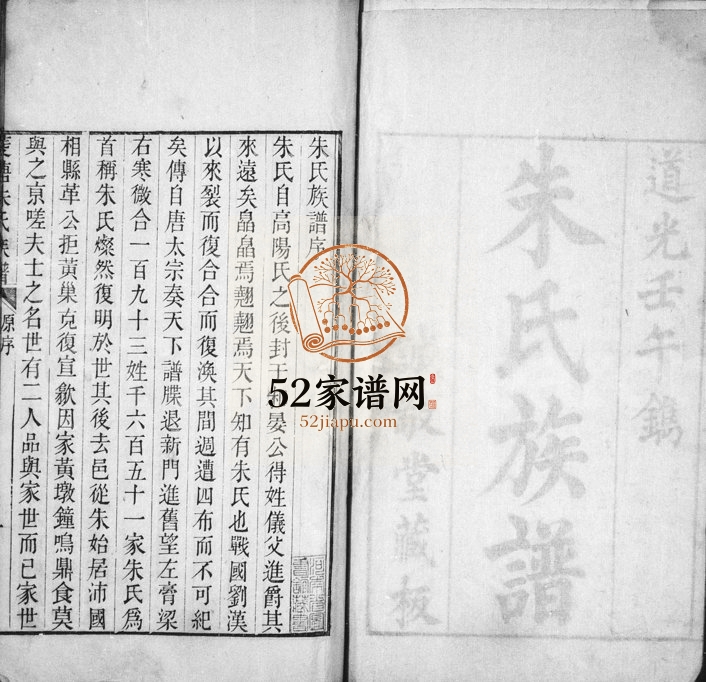 道光壬午鐫
朱氏族譜
堂藏板
朱氏族譜序
朱氏自高陽氏之後封于 晏公得姓儀父進爵其
來遠矣皛皛焉翹翹焉天下知有朱氏也戰國劉漢
以來裂而復合合而復渙其間遇遭四布而不可紀
矣傳自唐太宗奏天下譜牒退新門進舊望左膏梁
右寒微合一百九十三姓千六百五十一家朱氏爲
首稱朱氏燦然復明於世其後去邑從朱始居沛國
相縣革公拒黃巢克復宣歙因家黃墩鐘鳴鼎食莫
與之京嗟夫士之名世有二人品與家世而已家世
塘朱氏族譜
原序
52家谱网
52jiapu.com